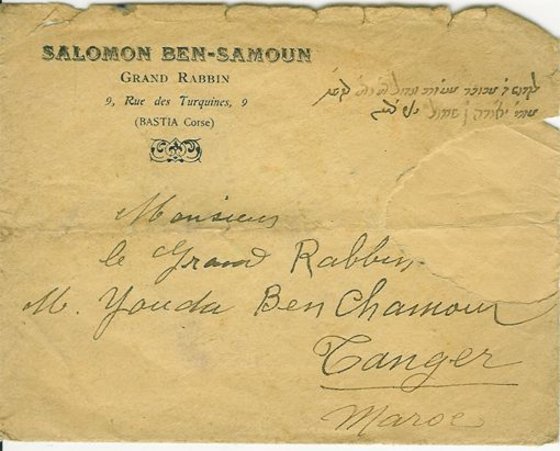 SALOMON BEN-SAMOUN
GRAND RABBIN
9, Rue des Turquines, 9
(BASTIA Corse)
Monsieur
le Grand Rabbin
M. Youda Ben Chamoun
Tanger
Maroc